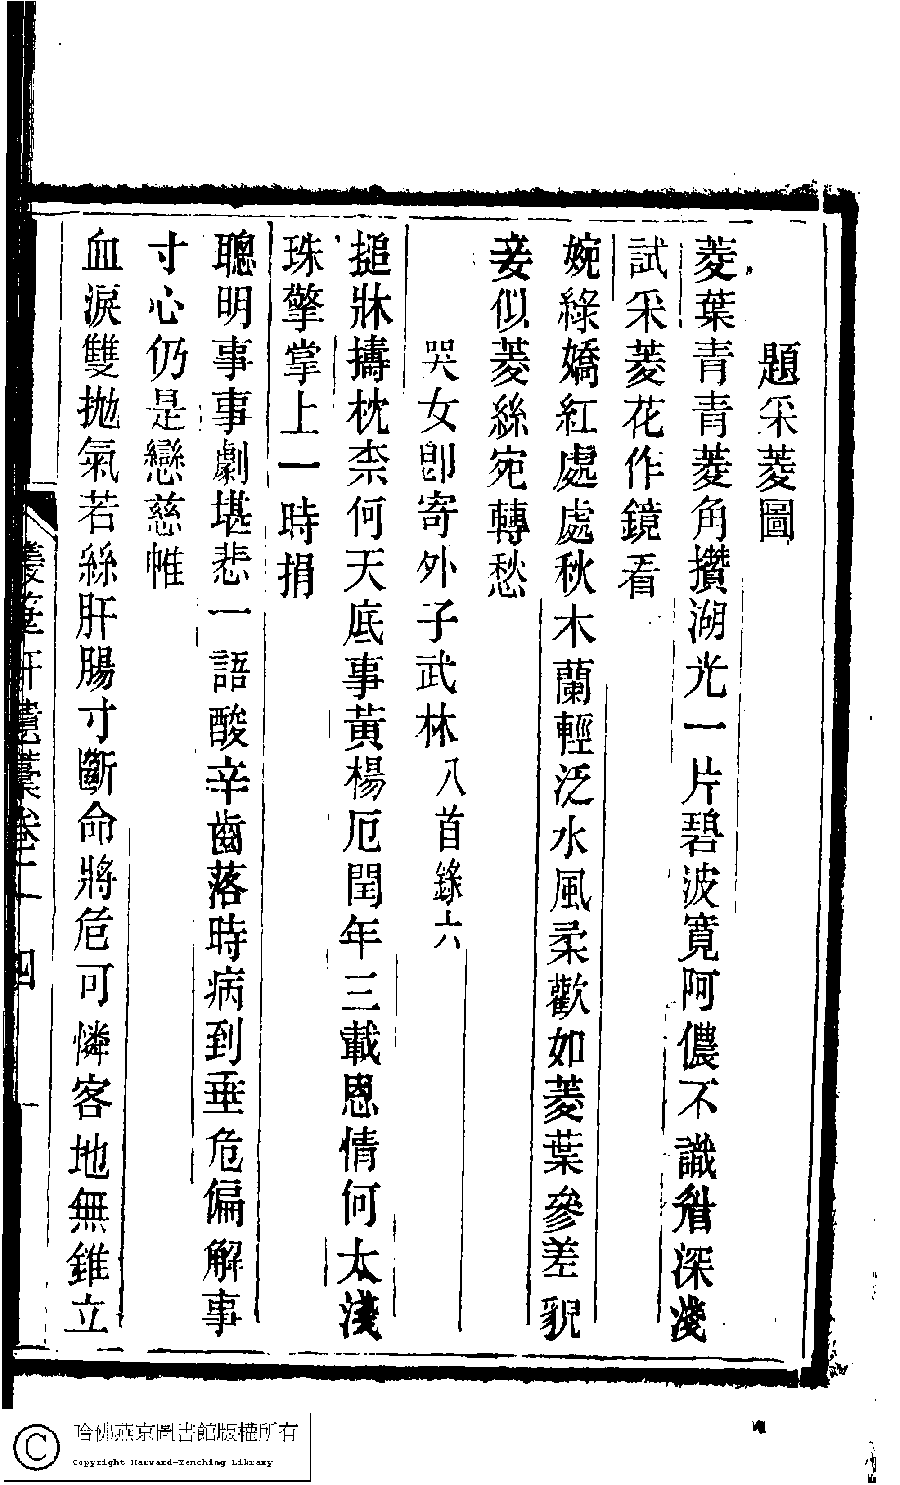 題采菱圖
菱葉青青菱角攢湖光一片碧波寬阿儂不識愁深淺
試采菱花作鏡看
婉綠嬌紅處處秋木蘭輕泛水風柔歡如菱葉參差貌
妾似菱絲宛轉愁
哭女卽寄外子武林八首錄六
搥牀擣枕柰何天底事黃楊厄閏年三載恩情何太淺
珠擎掌上一時捐
聰明事事劇堪悲一語酸辛齒落時病到垂危偏解事
寸心仍是戀慈帷
血淚雙拋氣若絲肝腸寸斷命將危可憐客地無錐立
卷二
四
哈佛燕京圖書館版權所有
Copyright Harvard-Yenching Library